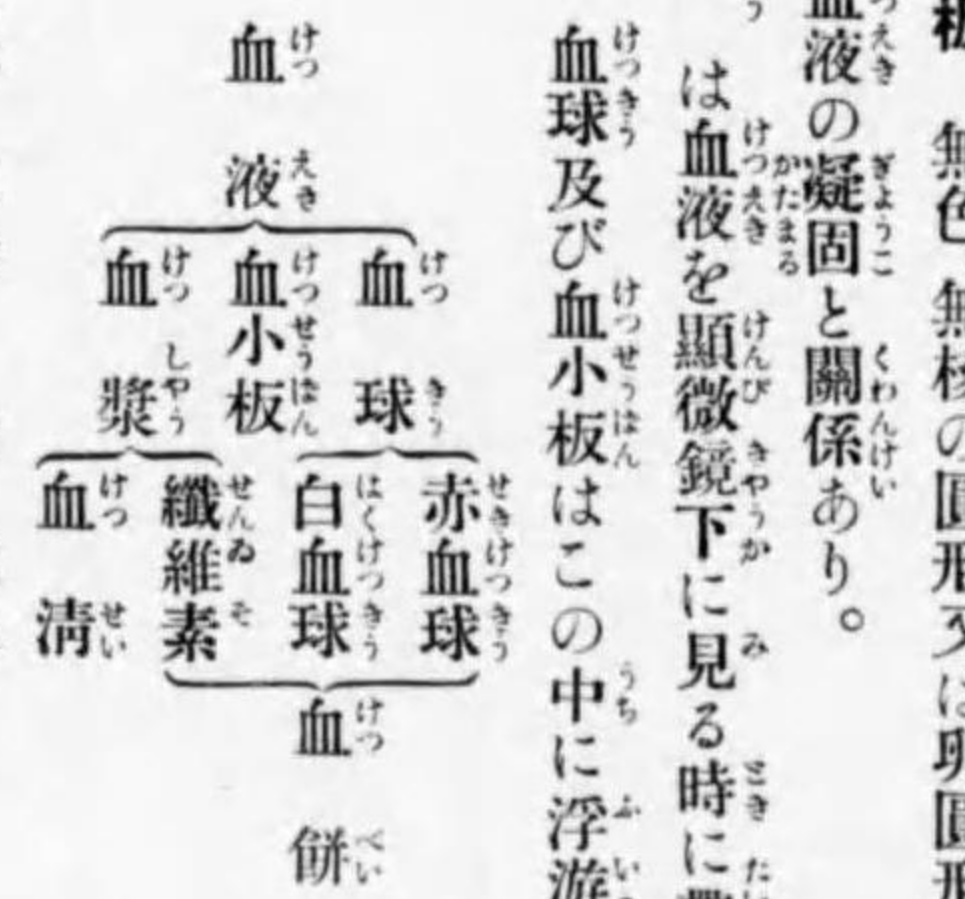 無色無核の圓形又は卵圓形
血液の凝固と關係あり。
は血液を顯微鏡下に見る時に
血球及び血小板はこの中に浮游
血液
血球
血小板
血漿
赤血球
白血球
纖維素
血清
血餠